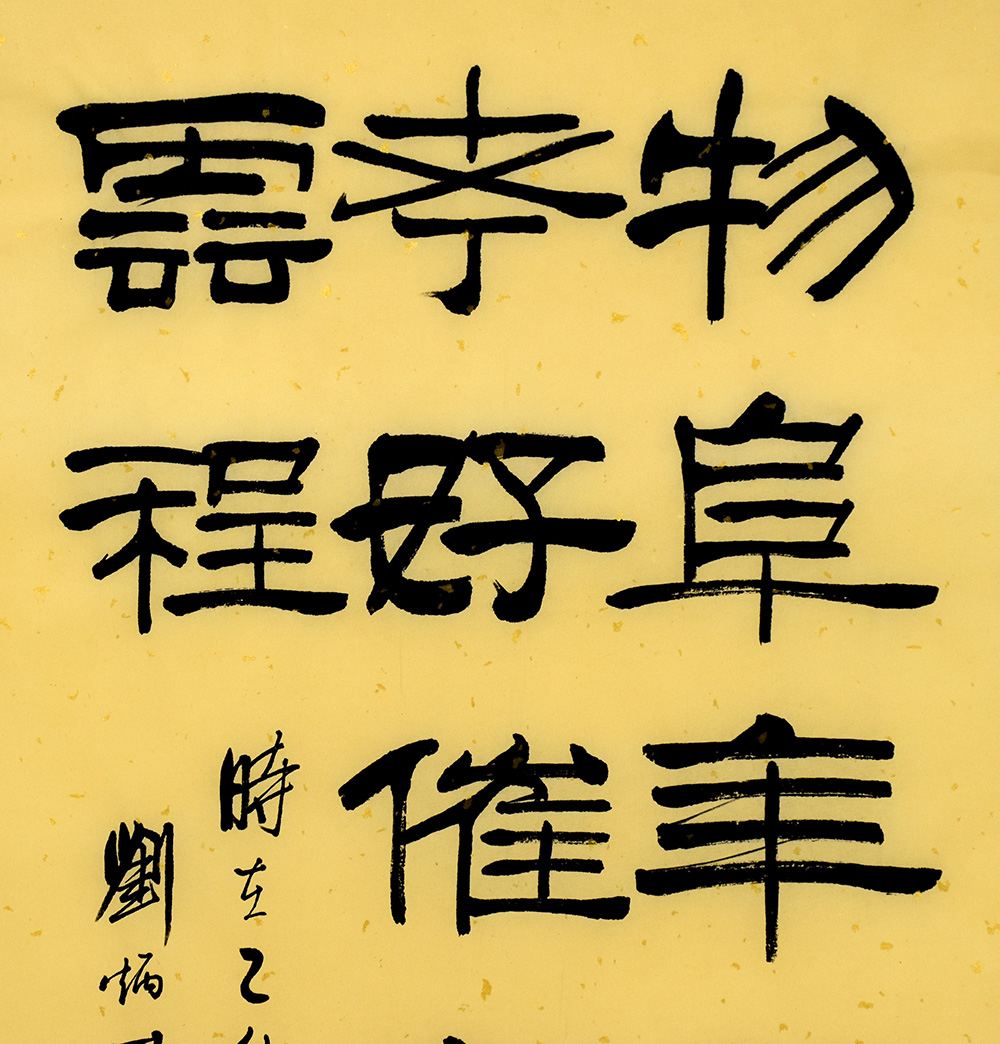 物阜年
考好催
雲程
時在乙
劉炳